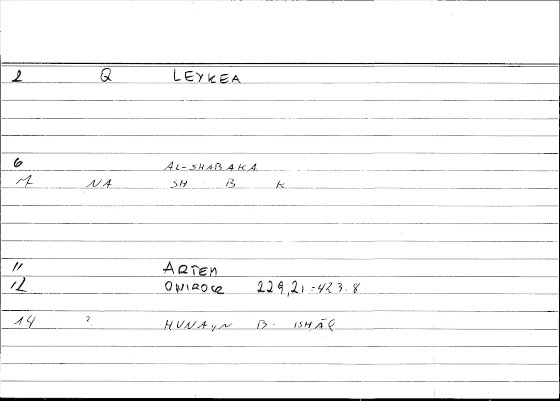 2 Q LEYKEA
6 AL-SHABAKA
M NA SH B K
11 ARTEM
12 ONIROCR 229,21=423.8
14 ? HUNAYN B. ISHĀQ